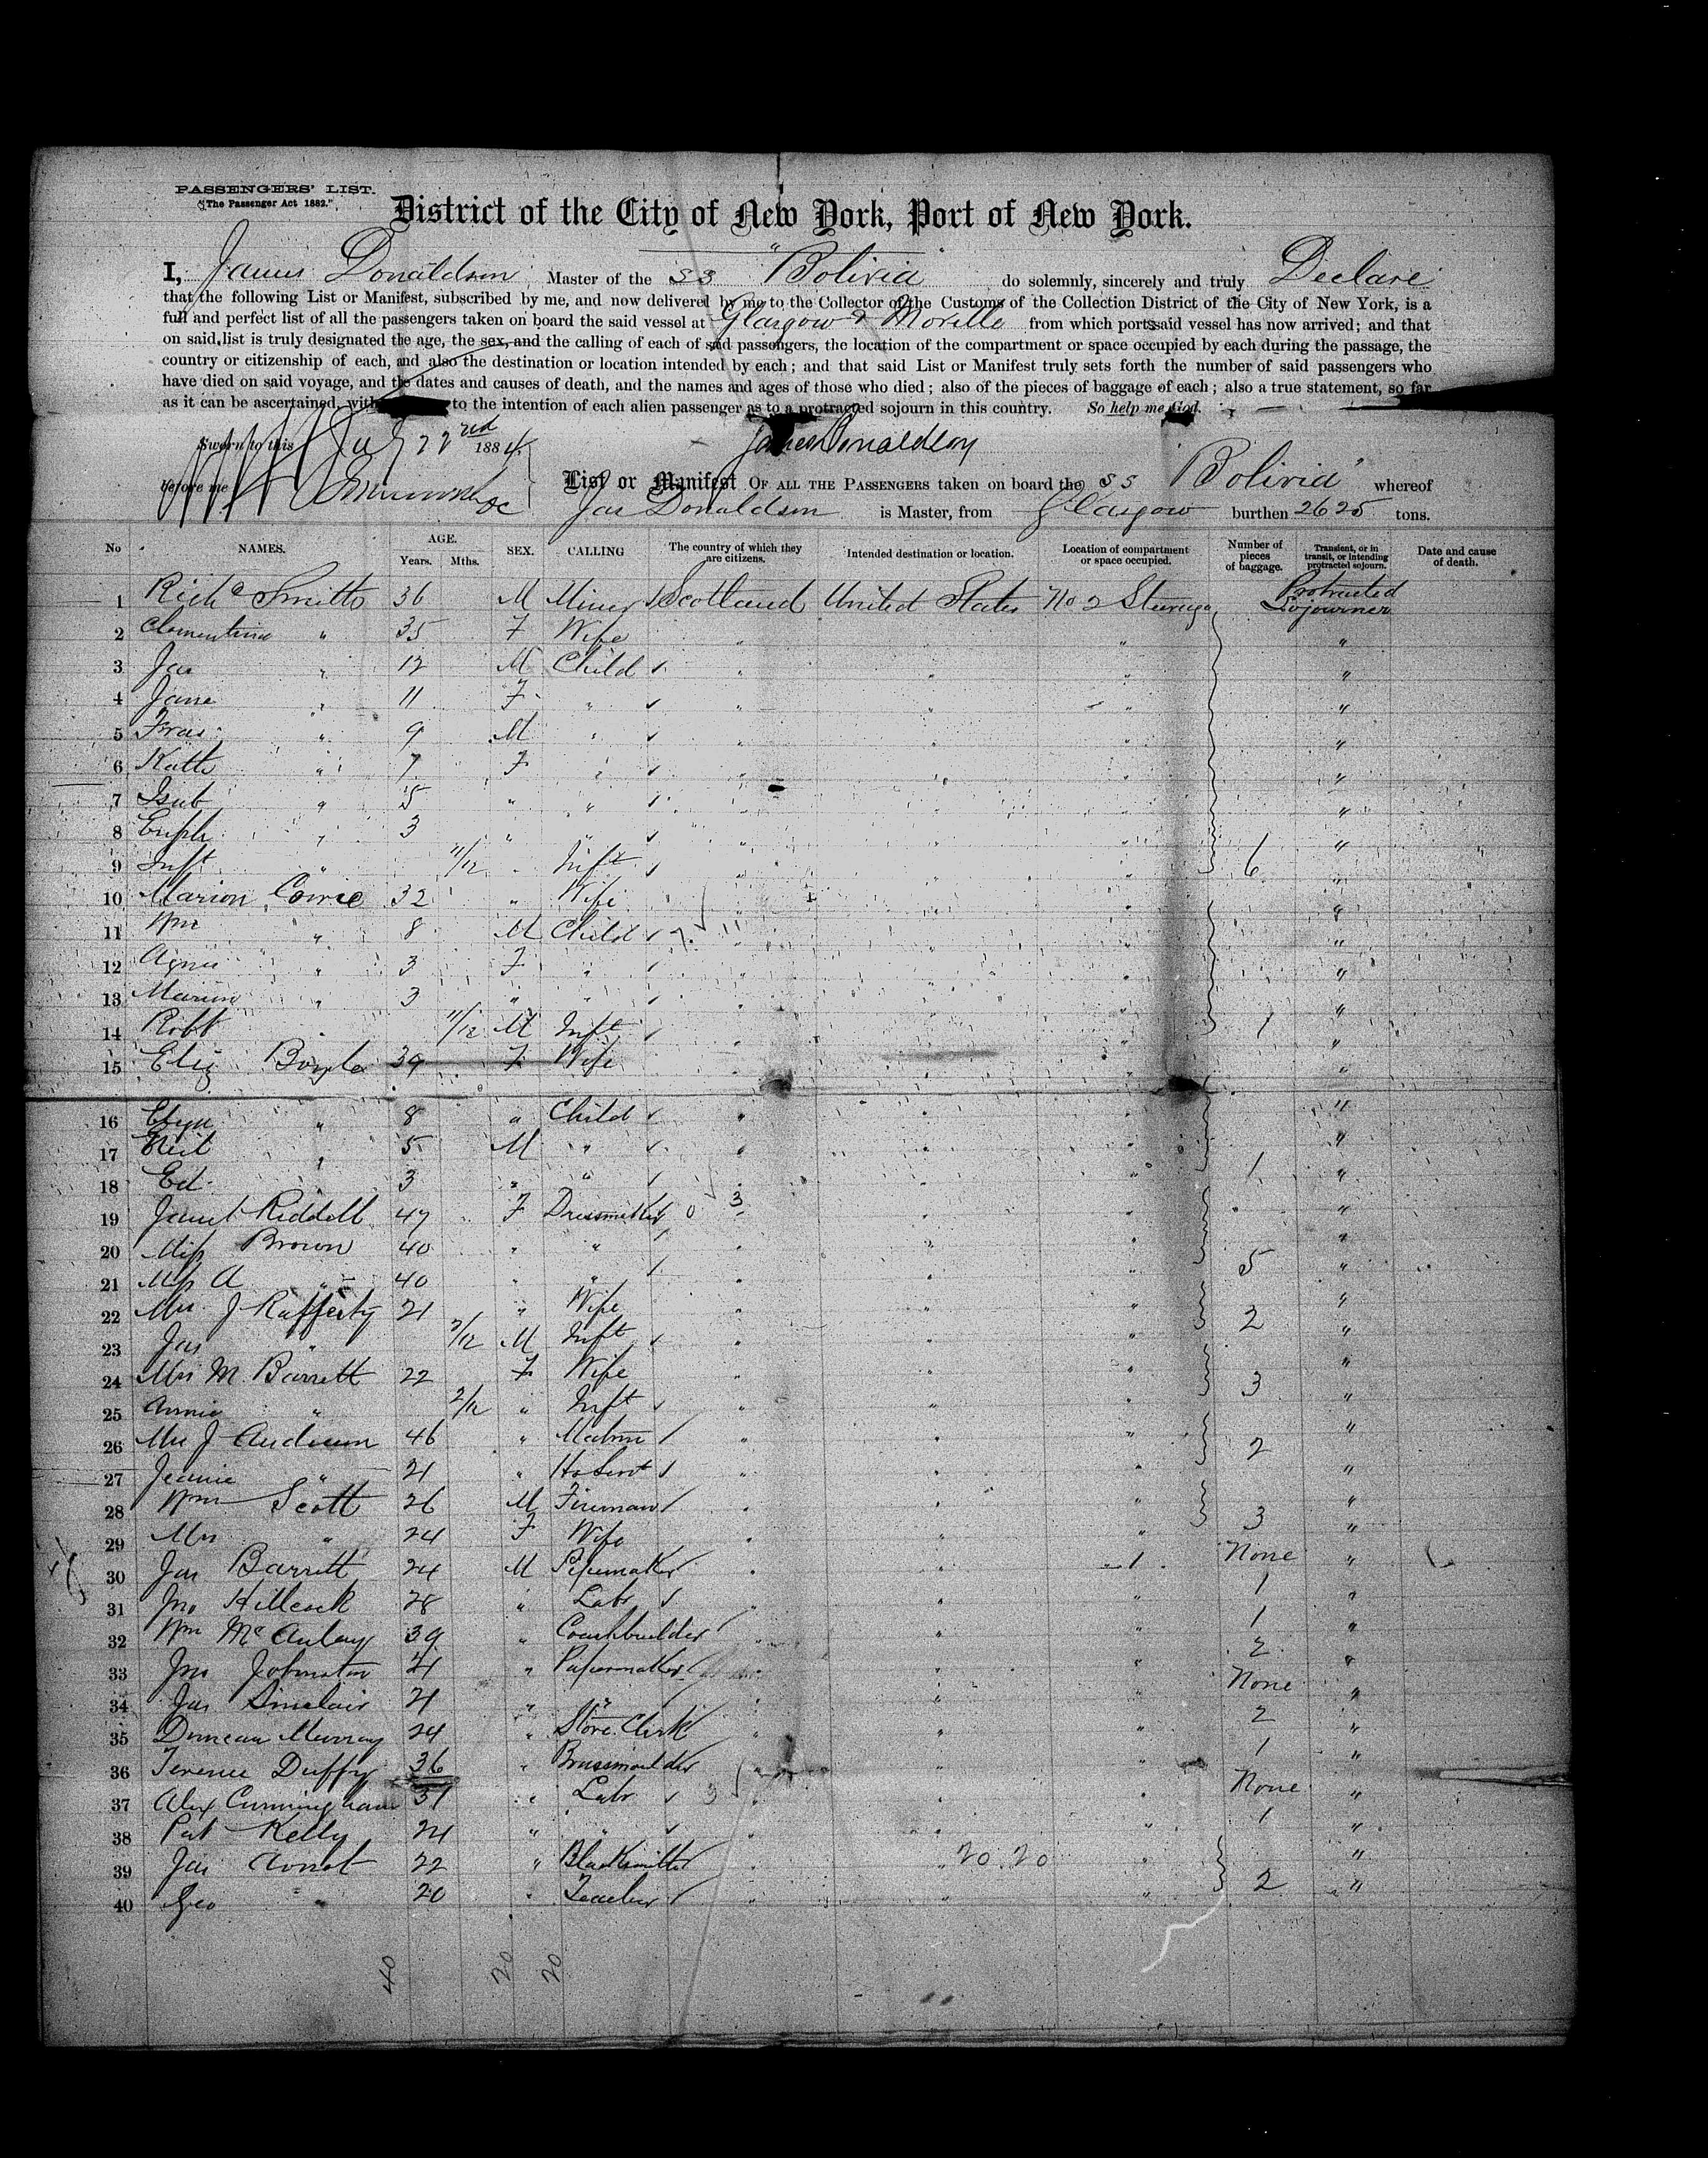 PASSENGERS' LIST.
"The Passenger Act 1882."
District of the City of New York, Port of New York.
I, James Donaldson Master of the SS "Bolivia" do solemnly, sincerely and truly Declare
that the following List or Manifest, subscribed by me, and now delivered by me to the Collector of the Customs of the Collection District of the City of New York, is a
full and perfect list of all the passengers taken on board the said vessel at Glasgow & Moville from which ports said vessel has now arrived; and that
on said list is truly designated the age, the sex, and the calling of each of said passengers, the location of the compartment or space occupied by each during the passage, the
country or citizenship of each, and also the destination or location intended by each; and that said List or Manifest truly sets forth the number of said passengers who
have died on said voyage, and the dates and causes of death, and the names and ages of those who died; also of the pieces of baggage of each; also a true statement, so far
as it can be ascertained, with to the intention of each alien passenger as to a protracted sojourn in this country. So help me God.
Sworn to this July 22nd 1884 James Donaldson
before me
List or Manifest OF ALL THE PASSENGERS taken on board the SS "Bolivia" whereof
Jas Donaldson is Master, from Glasgow burthen 2625 tons.
No NAMES. AGE. Years. Mths. SEX. CALLING The country of which they are citizens. Intended destination or location. Location of compartment or space occupied. Number of pieces of baggage. Transient, or in transit, or intending protracted sojourn. Date and cause of death.
1 Richd Smith 36 M Miner Scotland United States No 2 Steerage Protracted Sojourner
2 Clementina " 35 F Wife " " " "
3 Jas " 12 M Child " " " "
4 Jane " 11 F " " " " "
5 Fras " 9 M " " " " "
6 Kath " 7 F " " " " "
7 Isab " 5 " " " " " "
8 Euph " 3 " " " " " "
9 Inft " 11/12 " Inft " " " 6 "
10 Marion Cowie 32 " Wife " " " "
11 Wm " 8 M Child " " " "
12 Agnes " 3 F " " " " "
13 Marion " 3 " " " " " "
14 Robt " 11/12 M Inft " " " 1 "
15 Eliz Boyle 39 F Wife " " " "
16 " 8 " Child " " " "
17 Neil " 5 M " " " " "
18 Ed " 3 " " " " " 1 "
19 Janet Riddell 47 F Dressmaker 0 3 " " "
20 Miss Brown 40 " " " " " "
21 Miss A " 40 " " " " " 5 "
22 Mrs J Rafferty 21 " Wife " " " 2 "
23 Jas " /12 M Inft " " " "
24 Mrs M Barrett 22 F Wife " " " 3 "
25 Annie " 2/12 " Inft " " " "
26 Mrs J Anderson 46 " Matron " " " 2 "
27 Jeanie " 21 " Ho Servt " " " "
28 Wm Scott 26 M Fireman " " " 3 "
29 Mrs " 24 F Wife " " " "
30 Jas Barrett 24 M " " 1 None "
31 Jno 28 " Labr " " " 1 "
32 Wm McAulay 39 " Coachbuilder " " " 1 "
33 Jno Johnston 21 " Papermaker " " " 2 "
34 Jas Sinclair 21 " " " " " None "
35 Duncan Murray 24 " Store Clerk " " " 2 "
36 Terence Duffy 36 " Brassmoulder " " " 1 "
37 Alex Cunningham " Labr 3 " " " None "
38 Pat Kelly 24 " " " " " 1 "
39 Jas 22 " Blacksmith " " 20 20 " "
40 Geo " 20 " Teacher " " " 2 "
40 20 20